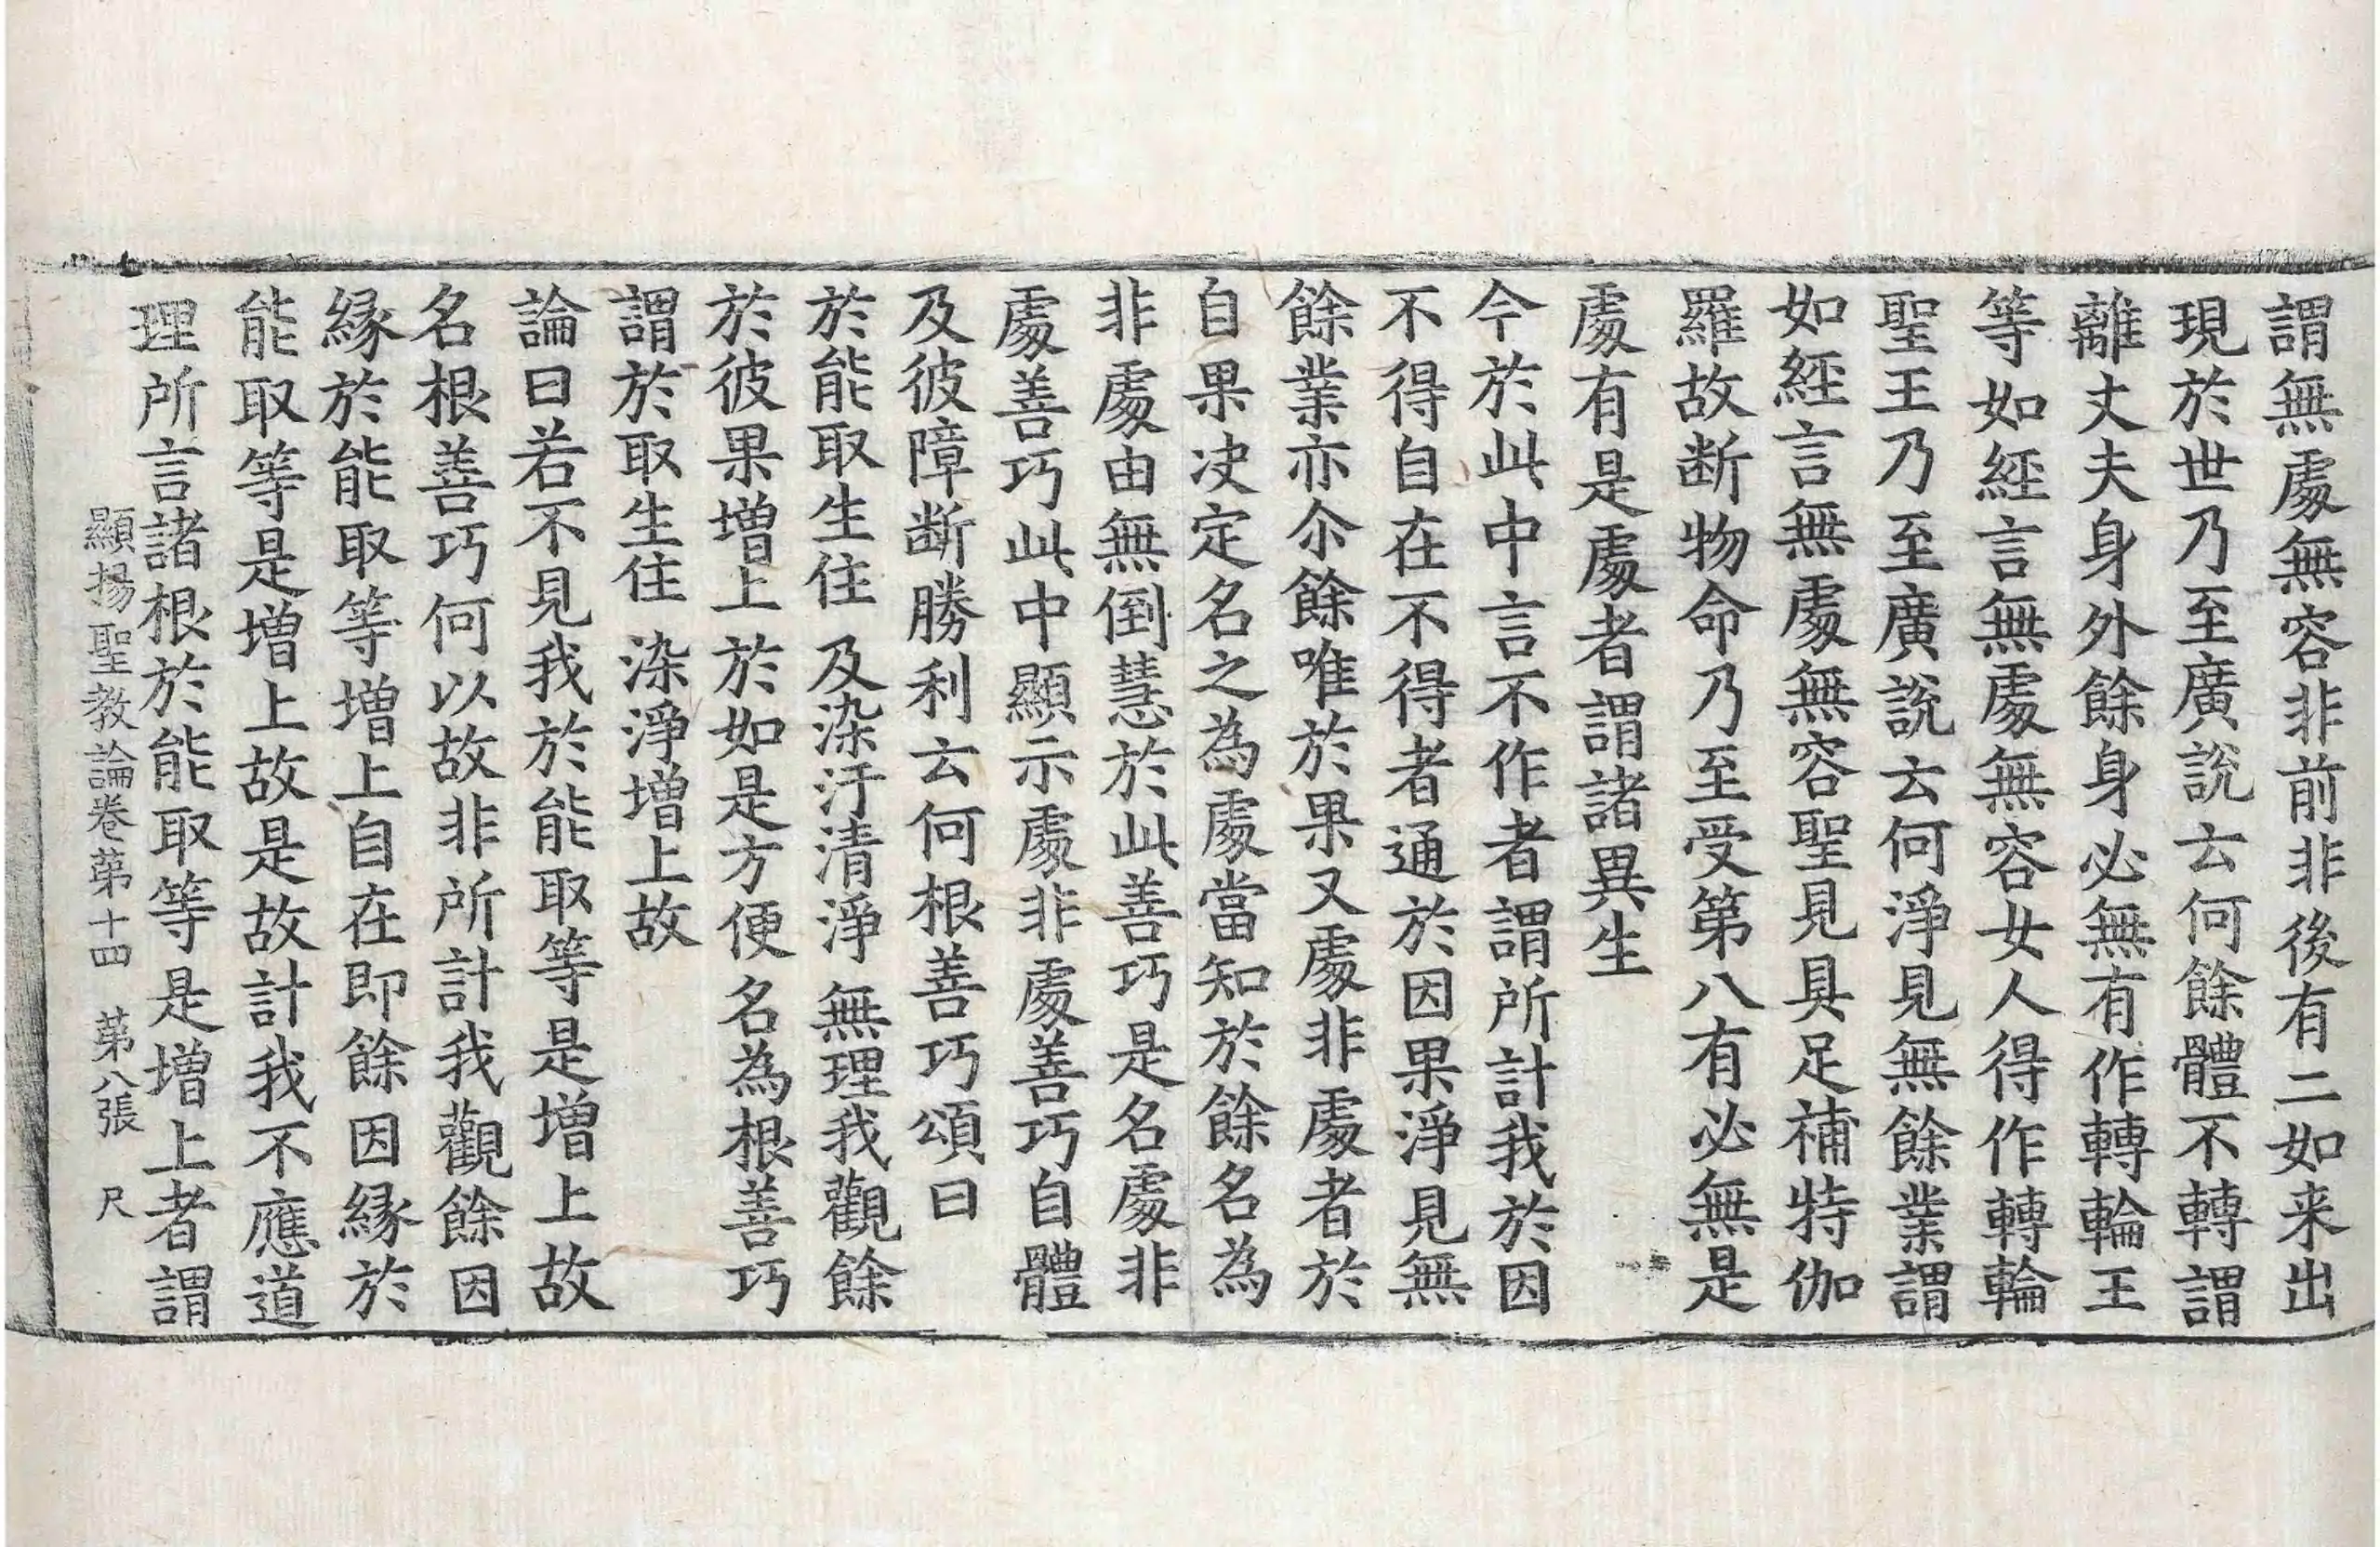 謂無處無容非前非後有二如来出
現於世乃至廣說云何餘體不轉謂
離丈夫身外餘身必無有作轉輪王
等如經言無處無容女人得作轉輪
聖王乃至廣說云何淨見無餘業謂
如經言無處無容聖見具足補特伽
羅故断物命乃至受第八有必無是
處有是處者謂諸異生
今於此中言不作者謂所計我於因
不得自在不得者通於因果淨見無
餘業亦尒餘唯於果又處非處者於
自果决定名之為處當知於餘名為
非處由無倒慧於此善巧是名處非
處善巧此中顯示處非處善巧自體
及彼障断勝利云何根善巧頌曰
於能取生住 及染汙清淨 無理我觀餘
於彼果增上 於如是方便 名為根善巧
謂於取生住 染淨增上故
論曰若不見我於能取等是增上故
名根善巧何以故非所計我觀餘因
緣於能取等增上自在即餘因緣於
能取等是增上故是故計我不應道
理所言諸根於能取等是增上者謂
顯揚聖教論卷苐十四 苐八張 尺